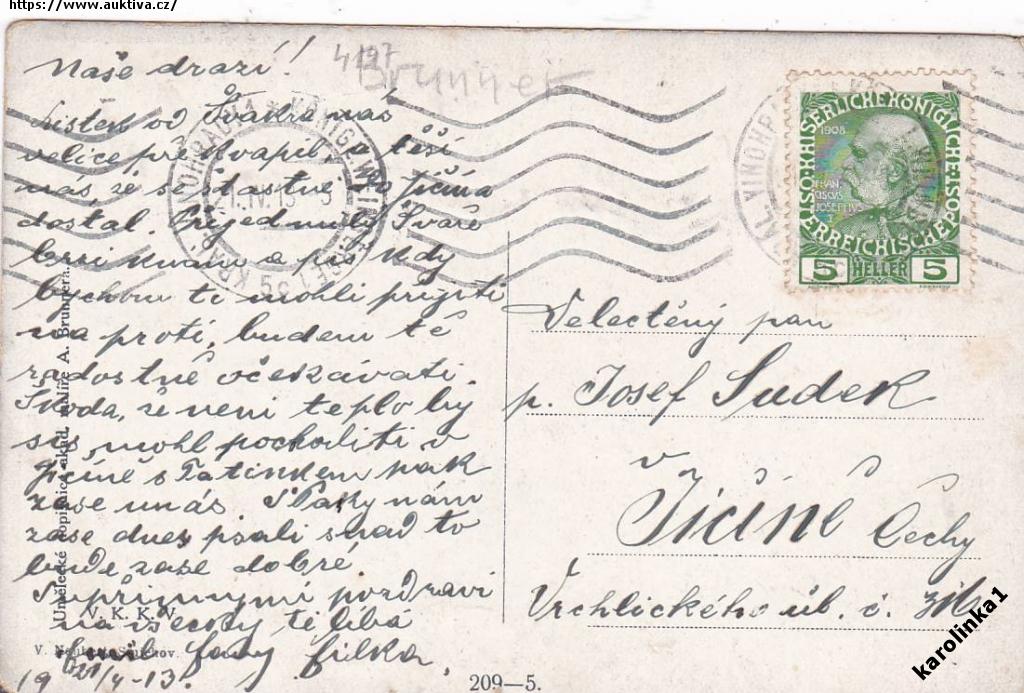 https://www.auktiva.cz/
4197
Brunner
Naše drazí!
od Švakra nás
velice překvapil, a těší
nás, že se šťastně do Jičína
dostal. Švaře
a kdy
bychom ti mohli přijíti
na proti, budem tě
radostně očekávati.
Škoda, že není teplo by
sis mohl pochoditi v
Jičíně s Tatínkem pak
zase u nás nám
zase dnes psali snad to
bude zase dobré
pozdraví
na všecky tě líbá
filka
19 21/4 - 13.
Umělecké dopisnice akad. malíře A. Brunnera.
V. K. K. V.
V. Neubert, Smíchov.
209—5.
KRÁL. VINOHRADY 1 * KÖNIGL. WEINBERGE 1
21. IV. 13
KAISERLICHE KÖNIGLICHE ÖSTERREICHISCHE POST
1908
FRANCISCUS
JOSEPHUS I
5 HELLER 5
Velectěný pan
p. Josef Sudek
v
Jičíně
Čechy
Vrchlického ul. č.
karolinka1